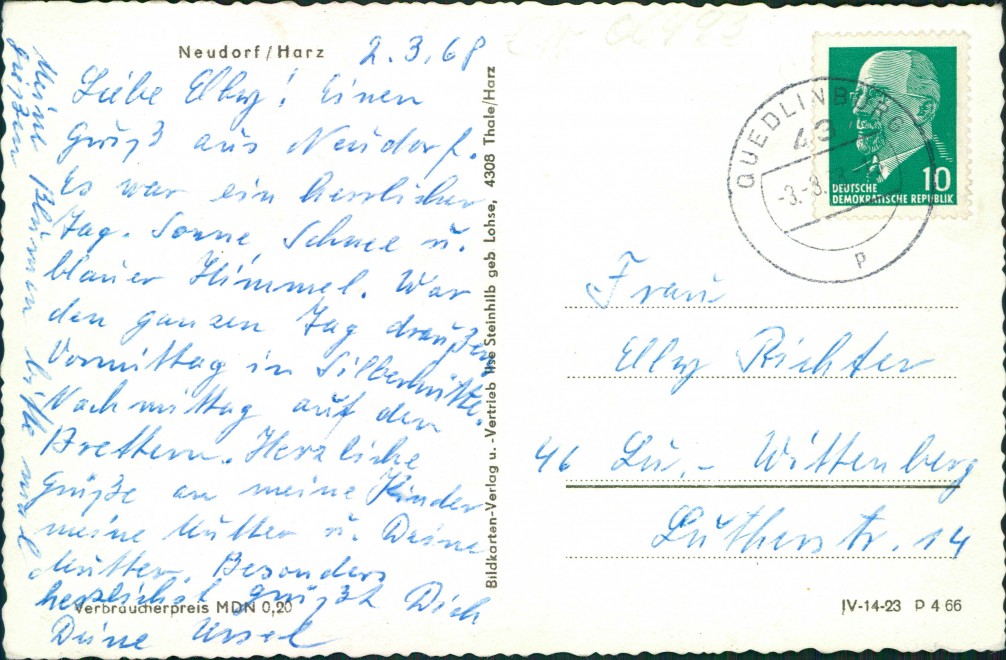 Neudorf/Harz
2.3.68
Liebe Elby! Einen
Gruß aus Neudorf.
Es war ein herrlicher
Tag. Sonne, Schnee u.
blauer Himmel. War
den ganzen Tag draußen
Vormittag in Silberhütte.
Nachmittag auf den
Brettern. Herzliche
Grüße an meine Kinder
meine Mutter u. Deine
Mutter. Besonders
herzlichst grüßt Dich
Deine Ursel
Meine Blumen bitte mal
gießen
Verbraucherpreis MDN 0,20
Bildkarten-Verlag u. -Vertrieb Ilse Steinhilb geb Lohse, 4308 Thale/Harz
QUEDLINBURG
43
-3.-3.
p
10
DEUTSCHE
DEMOKRATISCHE REPUBLIK
Frau
Elby Richter
46 Lu.- Wittenberg
Lutherstr. 14
IV-14-23 P 4 66